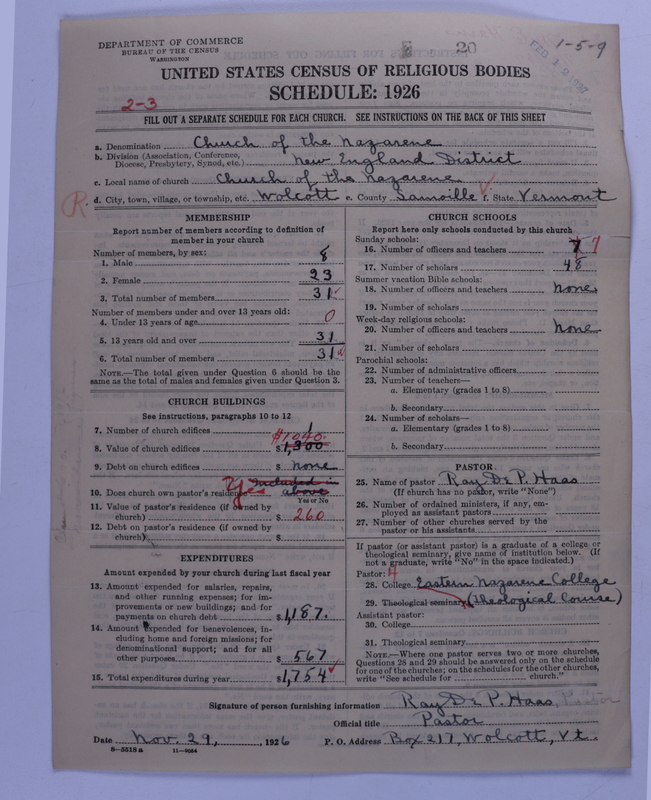 DEPARTMENT OF COMMERCE
BUREAU OF THE CENSUS
WASHINGTON
20
FEB 12 1927
1-5-9
UNITED STATES CENSUS OF RELIGIOUS BODIES
SCHEDULE: 1926
2-3
FILL OUT A SEPARATE SCHEDULE FOR EACH CHURCH. SEE INSTRUCTIONS ON THE BACK OF THIS SHEET
a. Denomination Church of the Nazarene
b. Division (Association, Conference, Diocese, Presbytery, Synod, etc.) New England District
c. Local name of church Church of the Nazarene
R. d. City, town, village, or township, etc. Wolcott e. County Lamoille f. State Vermont
MEMBERSHIP
Report number of members according to definition of
member in your church
Number of members, by sex:
1. Male 8
2. Female 23
3. Total number of members 31
Number of members under and over 13 years old:
4. Under 13 years of age 0
5. 13 years old and over 31
6. Total number of members 31
NOTE.—The total given under Question 6 should be the
same as the total of males and females given under Question 3.
CHURCH BUILDINGS
See instructions, paragraphs 10 to 12
7. Number of church edifices 1
$1040.
8. Value of church edifices $1,300
9. Debt on church edifices $ none
Included in
10. Does church own pastor's residence? Yes above
Yes or No
11. Value of pastor's residence (if owned by
church) $ 260
12. Debt on pastor's residence (if owned by
church) $
EXPENDITURES
Amount expended by your church during last fiscal year
13. Amount expended for salaries, repairs,
and other running expenses; for im-
provements or new buildings; and for
payments on church debt $1,187.
14. Amount expended for benevolences, in-
cluding home and foreign missions; for
denominational support; and for all
other purposes $ 567
15. Total expenditures during year $1,754
CHURCH SCHOOLS
Report here only schools conducted by this church
Sunday schools:
16. Number of officers and teachers 7 7
17. Number of scholars 48
Summer vacation Bible schools:
18. Number of officers and teachers none
19. Number of scholars
Week-day religious schools:
20. Number of officers and teachers none
21. Number of scholars
Parochial schools:
22. Number of administrative officers
23. Number of teachers—
a. Elementary (grades 1 to 8)
b. Secondary
24. Number of scholars—
a. Elementary (grades 1 to 8)
b. Secondary
PASTOR
25. Name of pastor Ray De P. Haas
(If church has no pastor, write "None")
26. Number of ordained ministers, if any, em-
ployed as assistant pastors
27. Number of other churches served by the
pastor or his assistants
If pastor (or assistant pastor) is a graduate of a college or
theological seminary, give name of institution below. (If
not a graduate, write "No" in the space indicated.)
Pastor:
28. College Eastern Nazarene College
29. Theological seminary (Theological Course)
Assistant pastor:
30. College
31. Theological seminary
NOTE.—Where one pastor serves two or more churches,
Questions 28 and 29 should be answered only on the schedule
for one of the churches; on the schedules for the other churches,
write "See schedule for ........ church."
Signature of person furnishing information Ray De P. Haas, Pastor
Official title Pastor
Date Nov. 29, 1926 P. O. Address Box 217, Wolcott, Vt.
8-5518a 11-9084